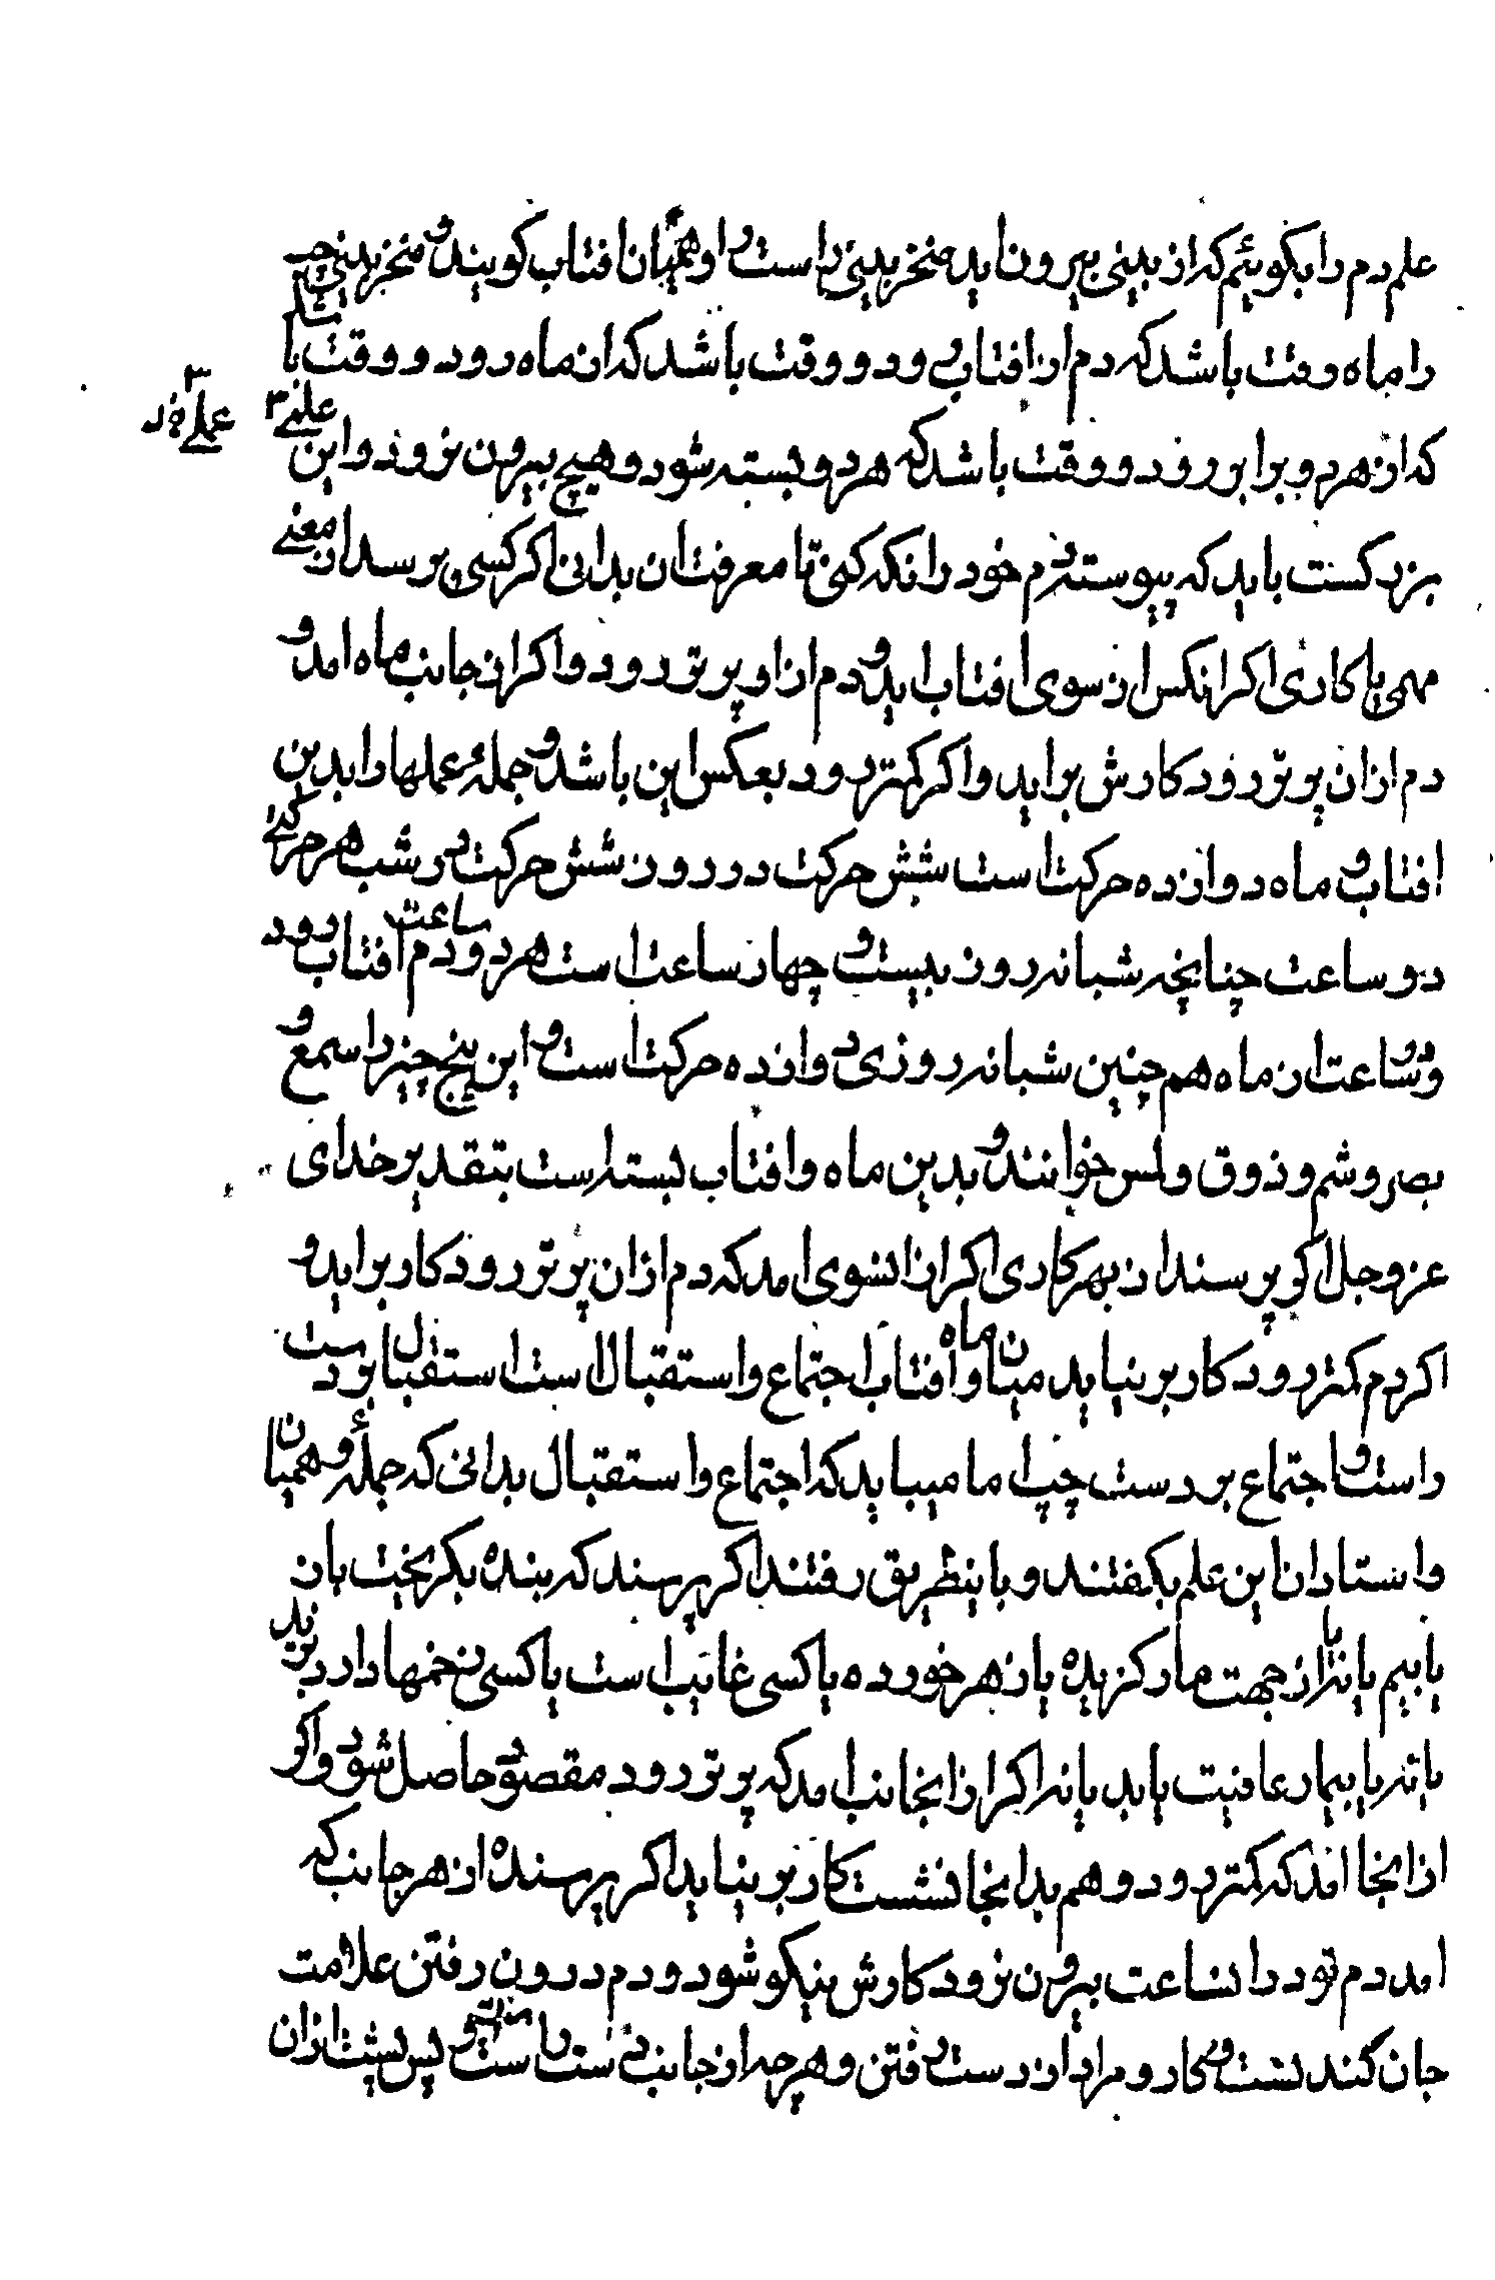 علم دم را بکوئیم که از بینی بیرون اید منخر بینی راست را وهمیان افتاب کویند و منخر بینی چپ
را ماه وقت باشد که دم از افتاب رود و وقت باشد که از ماه رود و وقت باشد
که از هر دو برابر رود و وقت باشد که هر دو بسته شود و هیچ بیرون نرود و این علمی
بزرکست باید که پیوسته دم خود را نکه کنی تا معرفت ان بدانی اکر کسی پرسد از معنی
مهمی یا کاری اکر انکس از سوی افتاب اید و دم از او پرتر رود و اکر از جانب ماه امد و
دم از ان پرتر رود کارش براید و اکر کمتر رود بعکس این باشد و جملهٔ عملها را بدین
افتاب و ماه دوازده حرکت است شش حرکت در روز شش حرکت در شب هر حرکتی
دو ساعت چنانچه شبانه روز بیست و چهار ساعت است هر دو ساعت دم افتاب رود
و دو ساعت از ماه هم چنین شبانه روزی دوازده حرکت است و این پنج چیز را سمع و
بصر و شم و ذوق و لمس خوانند و بدین ماه و افتاب بسته است بتقدیر خدای
عز و جل اکر پرسند از بهر کاری اکر از انسوی امد که دم از ان پرتر رود کار براید و
اکر دم کمتر رود کار برنیاید میان ماه و افتاب اجتماع و استقبال است استقبال بر دست
راست و اجتماع بر دست چپ اما میباید که اجتماع و استقبال بدانی که جملهٔ وهمیان
و استادان این علم بکفتند و باینطریق رفتند اکر پرسند که بنده بکریخت باز
یابیم یا نه یا از جهت مار کزیده یا زهر خورده یا کسی غایب است یا کسی زخمها دارد بزید
یا نه یا بیمار عافیت یابد یا نه اکر از انجانب امد که پرتر رود مقصود حاصل شود و اکر
از انجا امد که کمتر رود و هم بدانجا نشست کار برنیاید اکر پرسنده از هر جانب که
امد دم تو در انساعت بیرون نرود کارش نیکو شود و دم درون رفتن علامت
جان کند نست و کار و مراد از دست رفتن و هر چه از جانب دست راست پس پشت از ان